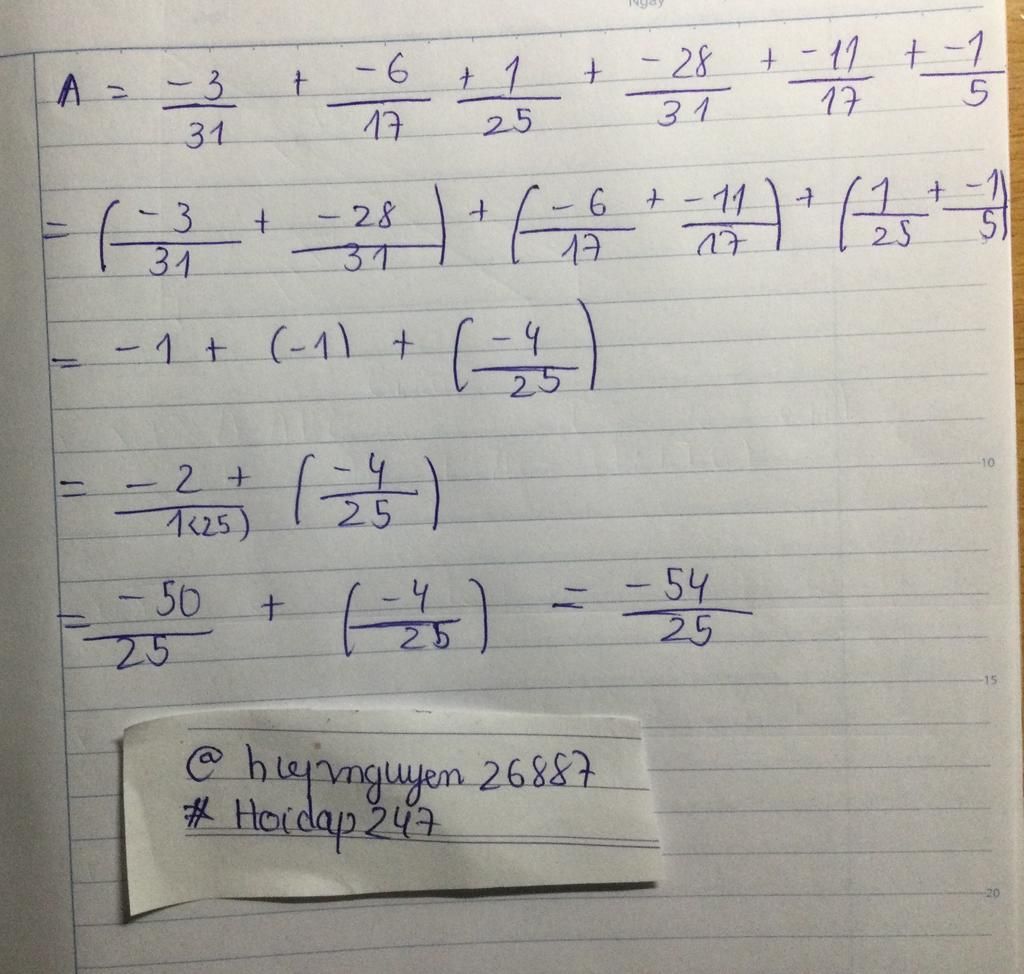 Ngày
A = -3/31 + -6/17 + 1/25 + -28/31 + -11/17 + -1/5
= (-3/31 + -28/31) + (-6/17 + -11/17) + (1/25 + -1/5)
= -1 + (-1) + (-4/25)
= -2/1(25) + (-4/25)
10
= -50/25 + (-4/25) = -54/25
15
@ huynguyen 26887
# Hoidap247
20